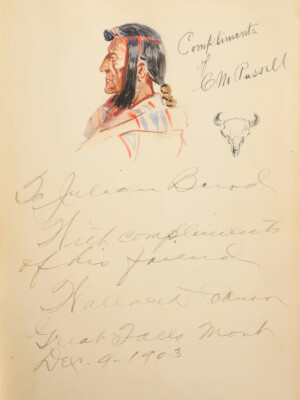 Compliments
of
C M Russell
To Julian
With compliments
of his friend
Wallace D Coburn
Great Falls Mont
Dec. 1903